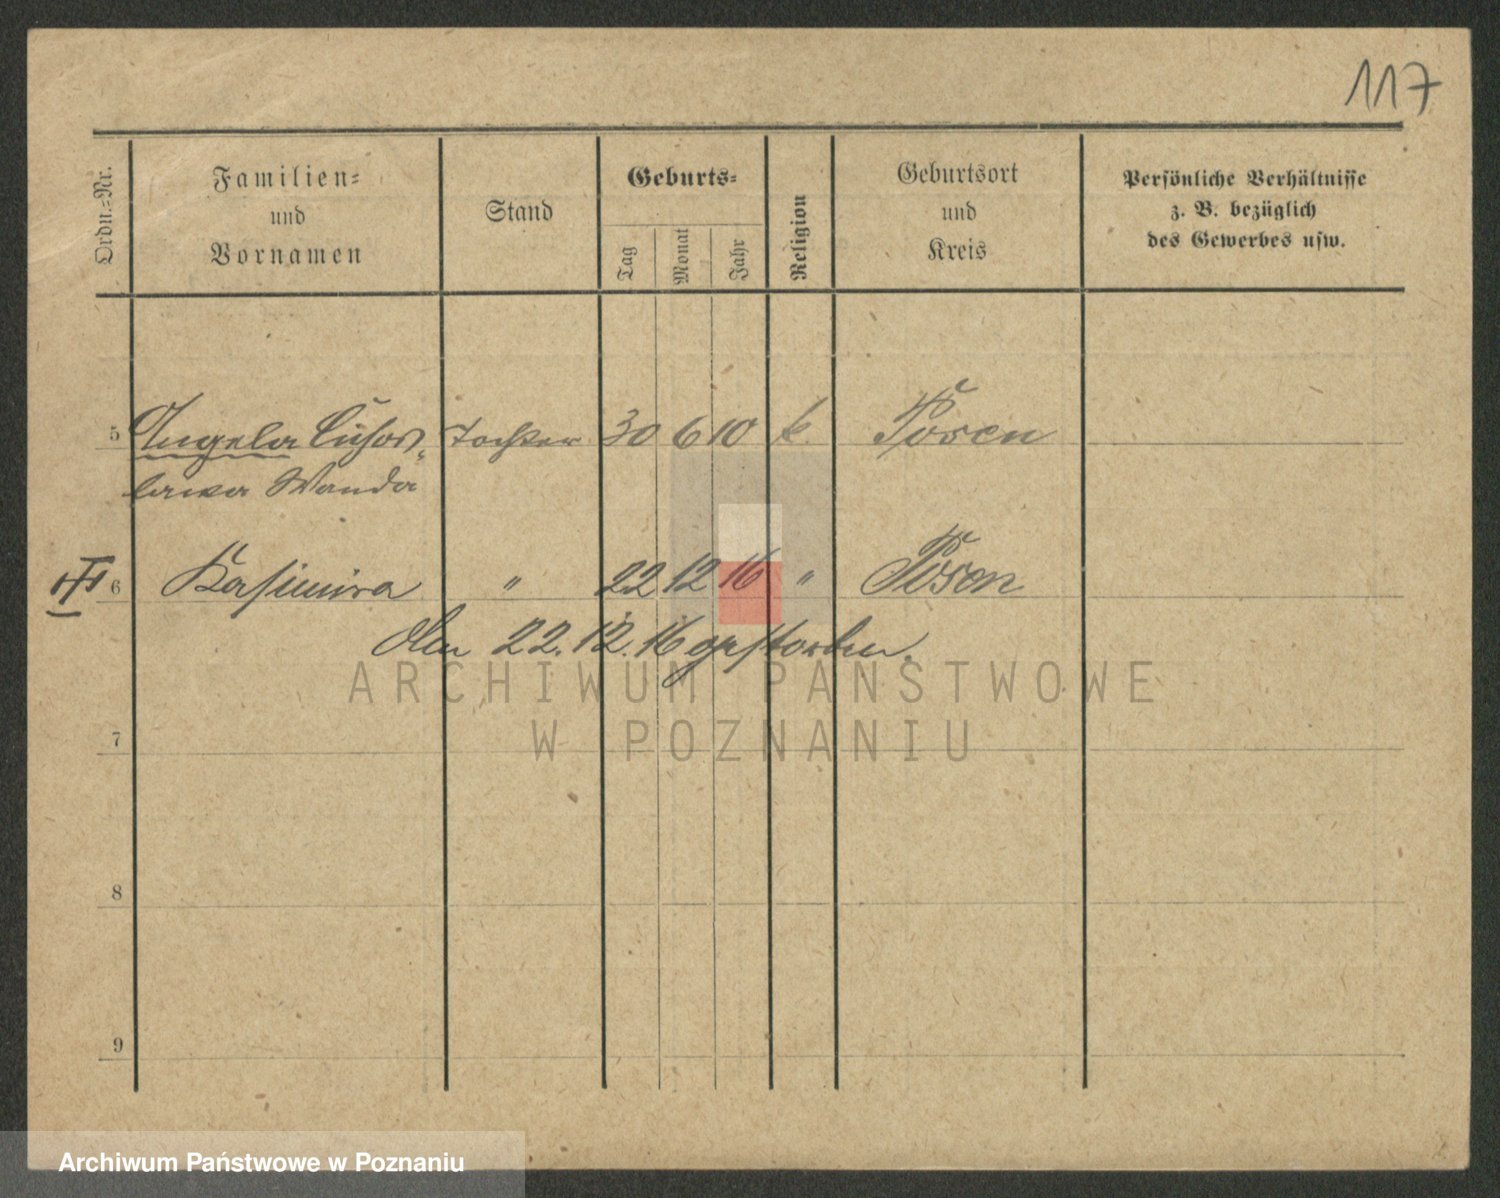 117
Ordn.-Nr.
Familien-
und
Vornamen
Stand
Geburts-
Tag
Monat
Jahr
Religion
Geburtsort
und
Kreis
Persönliche Verhältnisse
z. B. bezüglich
des Gewerbes usw.
5 Angela Tochter 30 6 10 k. Posen
Wanda
6 Kasimira " 22 12 16 " Posen
22. 12. 16 gestorben.
ARCHIWUM PAŃSTWOWE
W POZNANIU
7
8
9
Archiwum Państwowe w Poznaniu